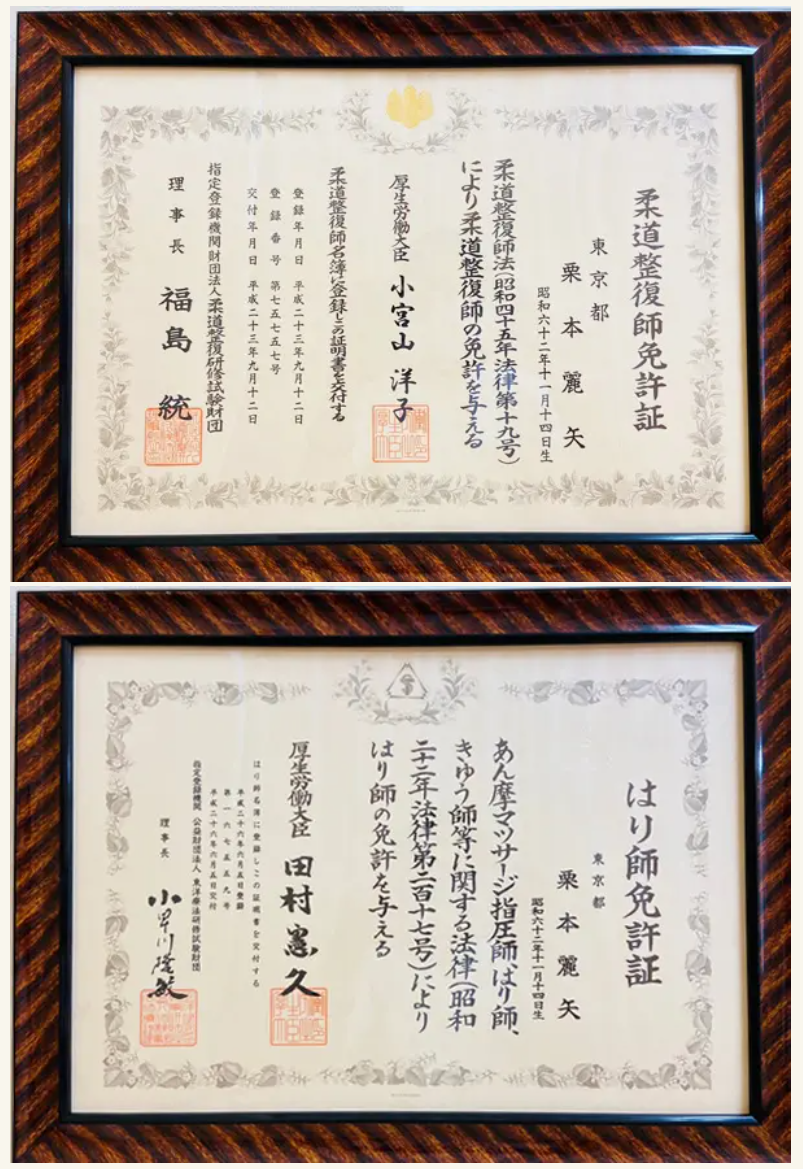 柔道整復師免許証
東京都
栗本麗矢
昭和六十二年十一月十四日生
柔道整復師法(昭和四十五年法律第十九号)
により柔道整復師の免許を与える
厚生労働大臣 小宮山洋子
柔道整復師名簿に登録しこの証明書を交付する
登録年月日 平成二十三年九月十二日
登録番号 第七五七五七号
交付年月日 平成二十三年九月十二日
指定登録機関財団法人柔道整復研修試験財団
理事長 福島統
はり師免許証
東京都
栗本麗矢
昭和六十二年十一月十四日生
あん摩マツサージ指圧師、はり師、
きゆう師等に関する法律(昭和
二十二年法律第二百十七号)により
はり師の免許を与える
厚生労働大臣 田村憲久
はり師名簿に登録しこの証明書を交付する
平成二十六年六月五日登録
第一六七五五九号
平成二十六年六月五日交付
指定登録機関 公益財団法人 東洋療法研修試験財団
理事長 小早川隆敏